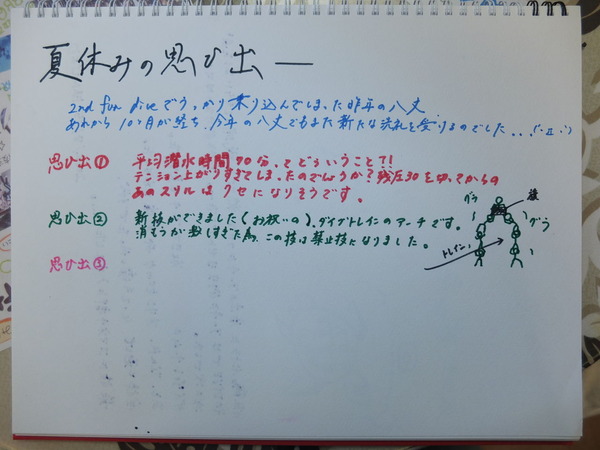 夏休みの思ひ出ー
2nd fun diveでうっかり乗り込んでしまった昨年の八丈
あれから10ヶ月が経ち、今年の八丈でもまた新たな洗礼を受けるのでした...
思ひ出① 平均潜水時間70分、てどういうこと?!
テンション上がりすぎてしまったのでしょうか?残圧30を切ってからの
あのスリルはクセになりそうです。
思ひ出② 新技ができました(お祝いの)、ダイブトレインのアーチです。
消もうが激しすぎた為、この技は禁止技になりました。
思ひ出③
グラ
グラ
トレイン